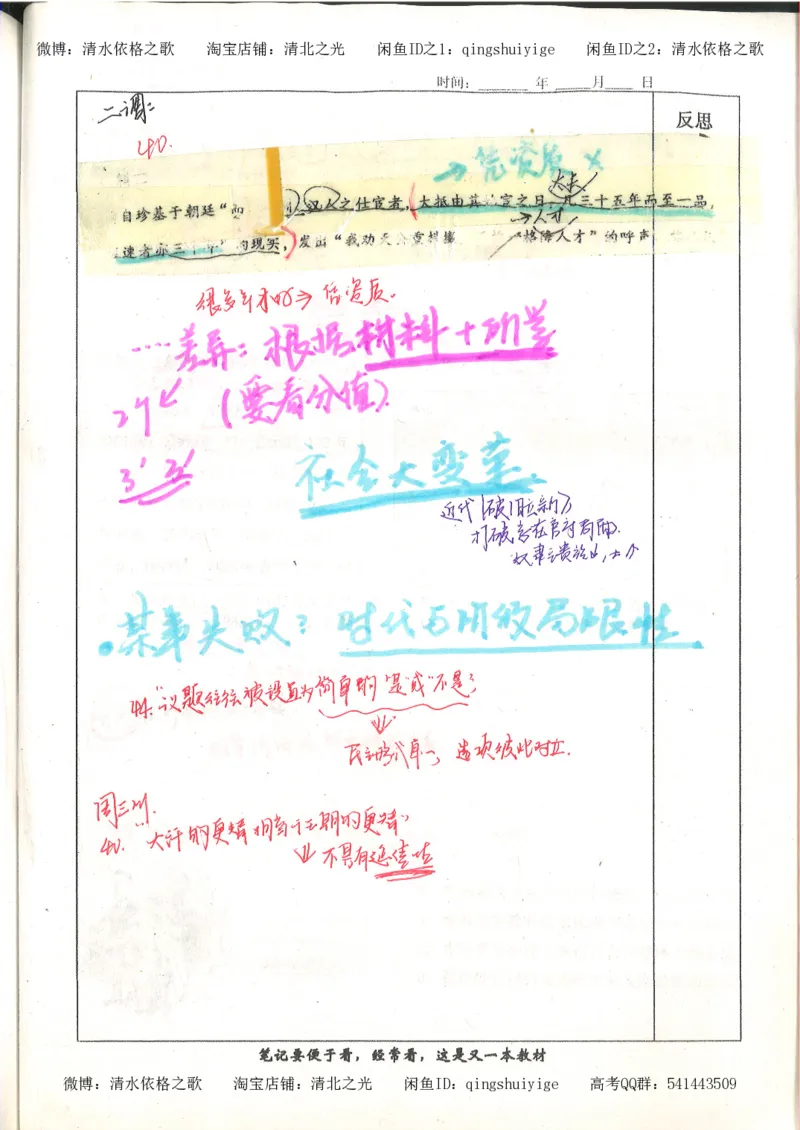 微博：清水依格之歌 淘宝店铺：清北之光 闲鱼ID之1：qingshuiyige 闲鱼ID之2：清水依格之歌
时间：______年_____月____日
二调：
反思
40.
→凭资质 ×
自珍基于朝廷“ 汉人之仕宦者，大抵由其 宦之日，凡三十五年而至一品，
速者亦三十年”的现实，发出“我劝天公重抖擞 “格降人才”的呼声
很多年才的⇒ 凭资质.
……差异：根据材料＋所学
2个 (要看分值)
3' 3'
社会大变革.
近代(破旧立新)
打破
某事失败：时代与阶级局限性.
44.“议题往往被设置为简单的‘是’或‘不是’”
民主形式单一, 选项彼此对立.
周三
40. “大汗的更替相当于王朝的更替”
不具有延续性
笔记要便于看，经常看，这是又一本教材
微博：清水依格之歌 淘宝店铺：清北之光 闲鱼ID：qingshuiyige 高考QQ群：541443509